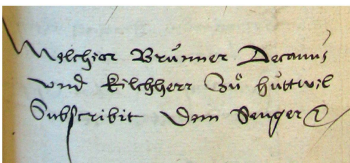 Melchior Brůnner Decanus
vnd Kilchherr Zů hůttwil
Subscribit Dem Senger